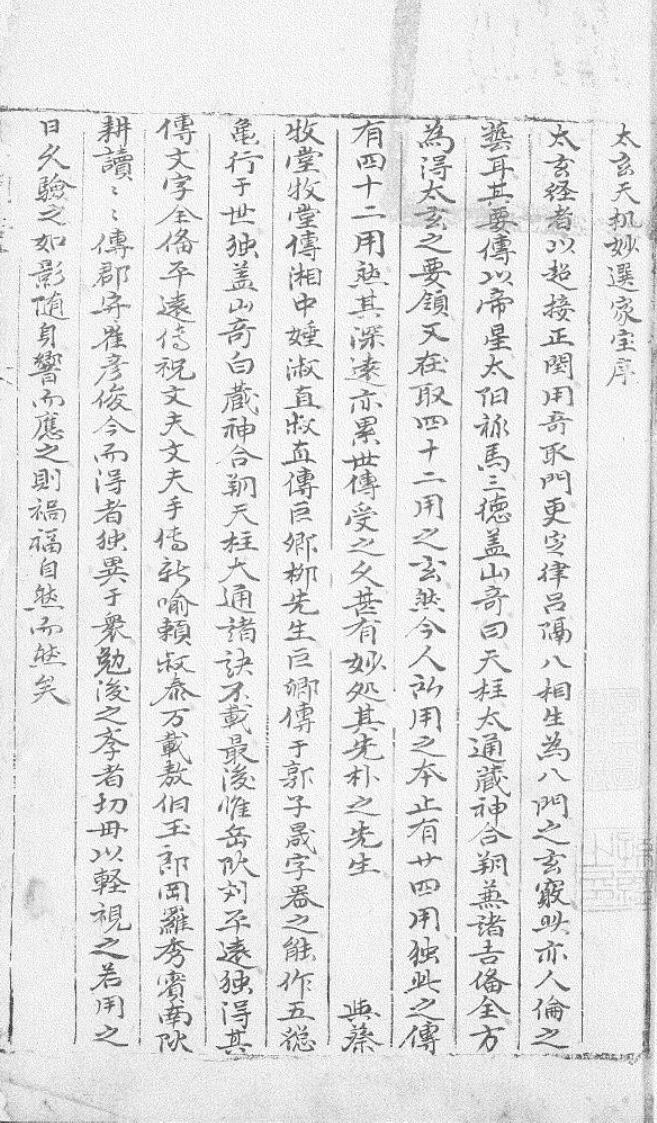 太玄天机妙選家宝序
太玄経者以超接正閏用奇取門更定律呂隔八相生為八門之玄竅此亦人倫之
藝耳其要傳以帝星太阳祿馬三德盖山奇曰天柱太通藏神合朔兼諸吉俻全方
為得太玄之要領又在取四十二用之玄然今人所用之本止有廿四用独此之傳
有四十二用然其深遠亦累世傳受之久甚有妙処其先朴之先生 與蔡
牧堂牧堂傳湘中 淑直叔直傳巨卿柳先生巨卿傳于郭子晟字器之能作五
亀行于世独盖山奇白藏神合朔天柱大通諸訣不載最後惟岳 刘平遠独得其
傳文字全俻平遠传祝文夫文夫手传新喻賴叔泰万載敖伯玉郎岡羅秀賓南
耕讀〻傳郡 崔彦俊今而得者独異于衆勉後之李者切毋以軽視之若用之
日久驗之如影随身響而應之則禍福自然而然矣